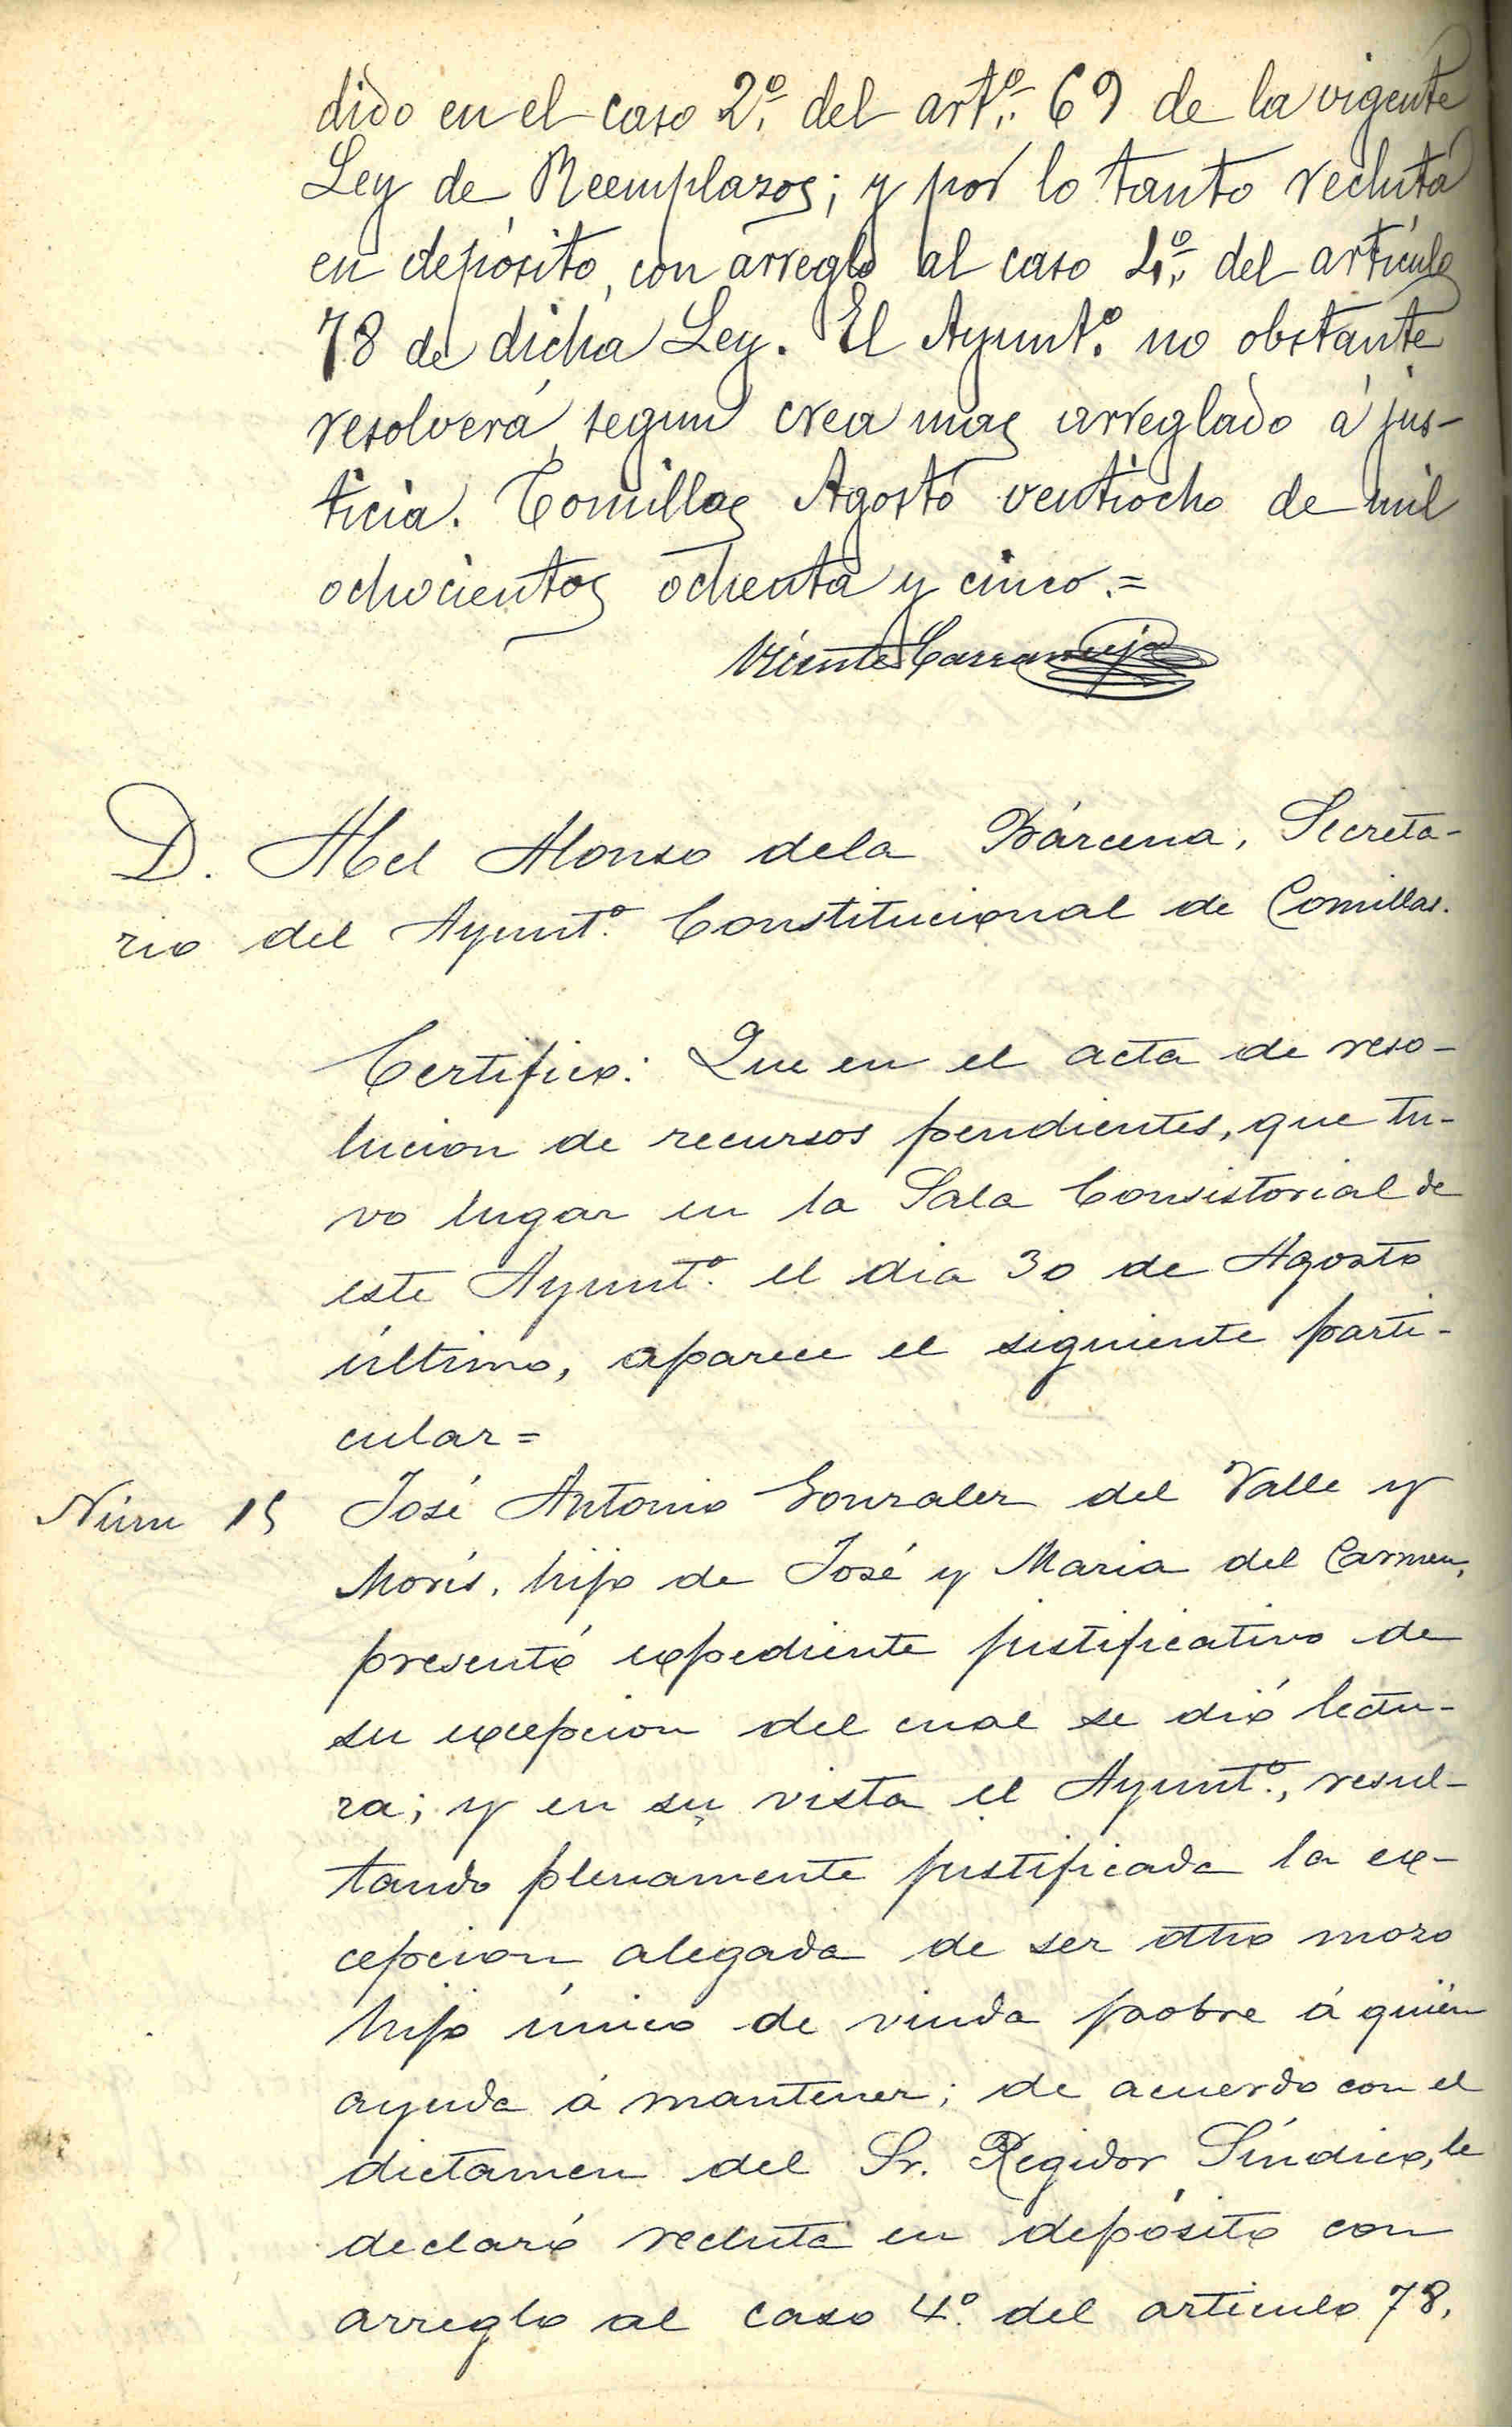 dido en el caso 2º del artº 69 de la vigente
Ley de Reemplazos; y por lo tanto recluta
en depósito, con arreglo al caso 4º del artículo
78 de dicha Ley. El Ayuntº no obstante
resolverá, segun crea mas arreglado á jus-
ticia. Comillas Agosto ventiocho de mil
ochocientos ochenta y cinco.=
Vicente
D. Abel Alonso dela Bárcena, Secreta-
rio del Ayuntº Constitucional de Comillas.
Certifico: Que en el acta de reso-
lucion de recursos pendientes, que tu-
vo lugar en la Sala Consistorial de
este Ayuntº el dia 30 de Agosto
último, aparece el siguiente parti-
cular=
Núm 15 José Antonio Gonzalez del Valle y
Morís, hijo de José y Maria del Carmen,
presentó expediente justificativo de
su excepcion del cual se dió lectu-
ra; y en su vista el Ayuntº, resul-
tando plenamente justificada la ex-
cepcion alegada de ser dho mozo
hijo único de viuda pobre á quién
ayuda á mantener; de acuerdo con el
dictamen del Sr. Regidor Síndico, le
declaró recluta en depósito con
arreglo al caso 4º del articulo 78.